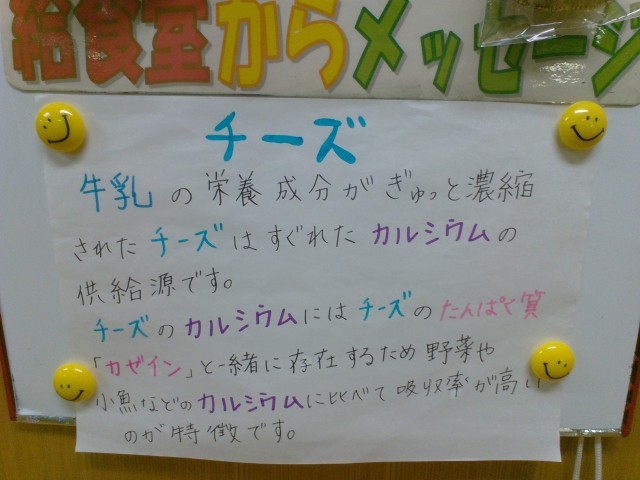 給食室からメッセージ
チーズ
牛乳の栄養成分がぎゅっと濃縮
されたチーズはすぐれたカルシウムの
供給源です。
チーズのカルシウムにはチーズのたんぱく質
「カゼイン」と一緒に存在するため野菜や
小魚などのカルシウムに比べて吸収率が高い
のが特徴です。